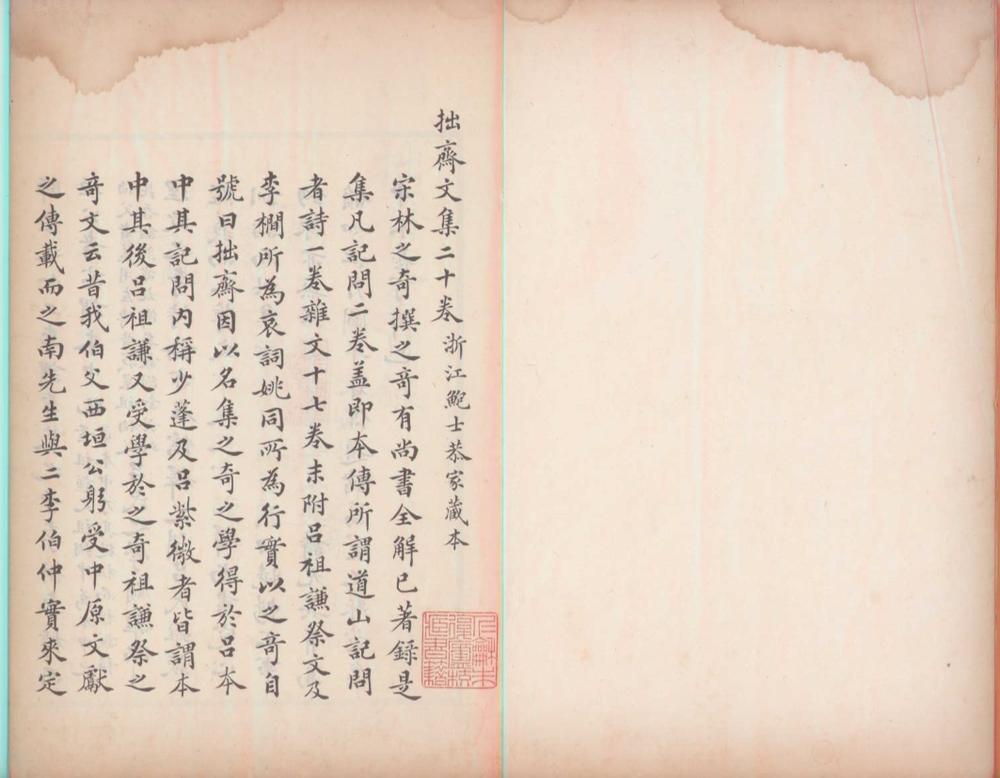 拙齋文集二十卷 浙江鮑士恭家藏本
宋林之奇撰之奇有尚書全解已著錄是
集凡記問二卷盖即本傳所謂道山記問
者詩一卷雜文十七卷末附呂祖謙祭文及
李櫚所為哀詞姚同所為行實以之奇自
號曰拙齋因以名集之奇之學得於呂本
中其記問内稱少蓬及呂紫微者皆謂本
中其後呂祖謙又受學於之奇祖謙祭之
奇文云昔我伯父西垣公躬受中原文獻
之傳載而之南先生與二李伯仲實來定